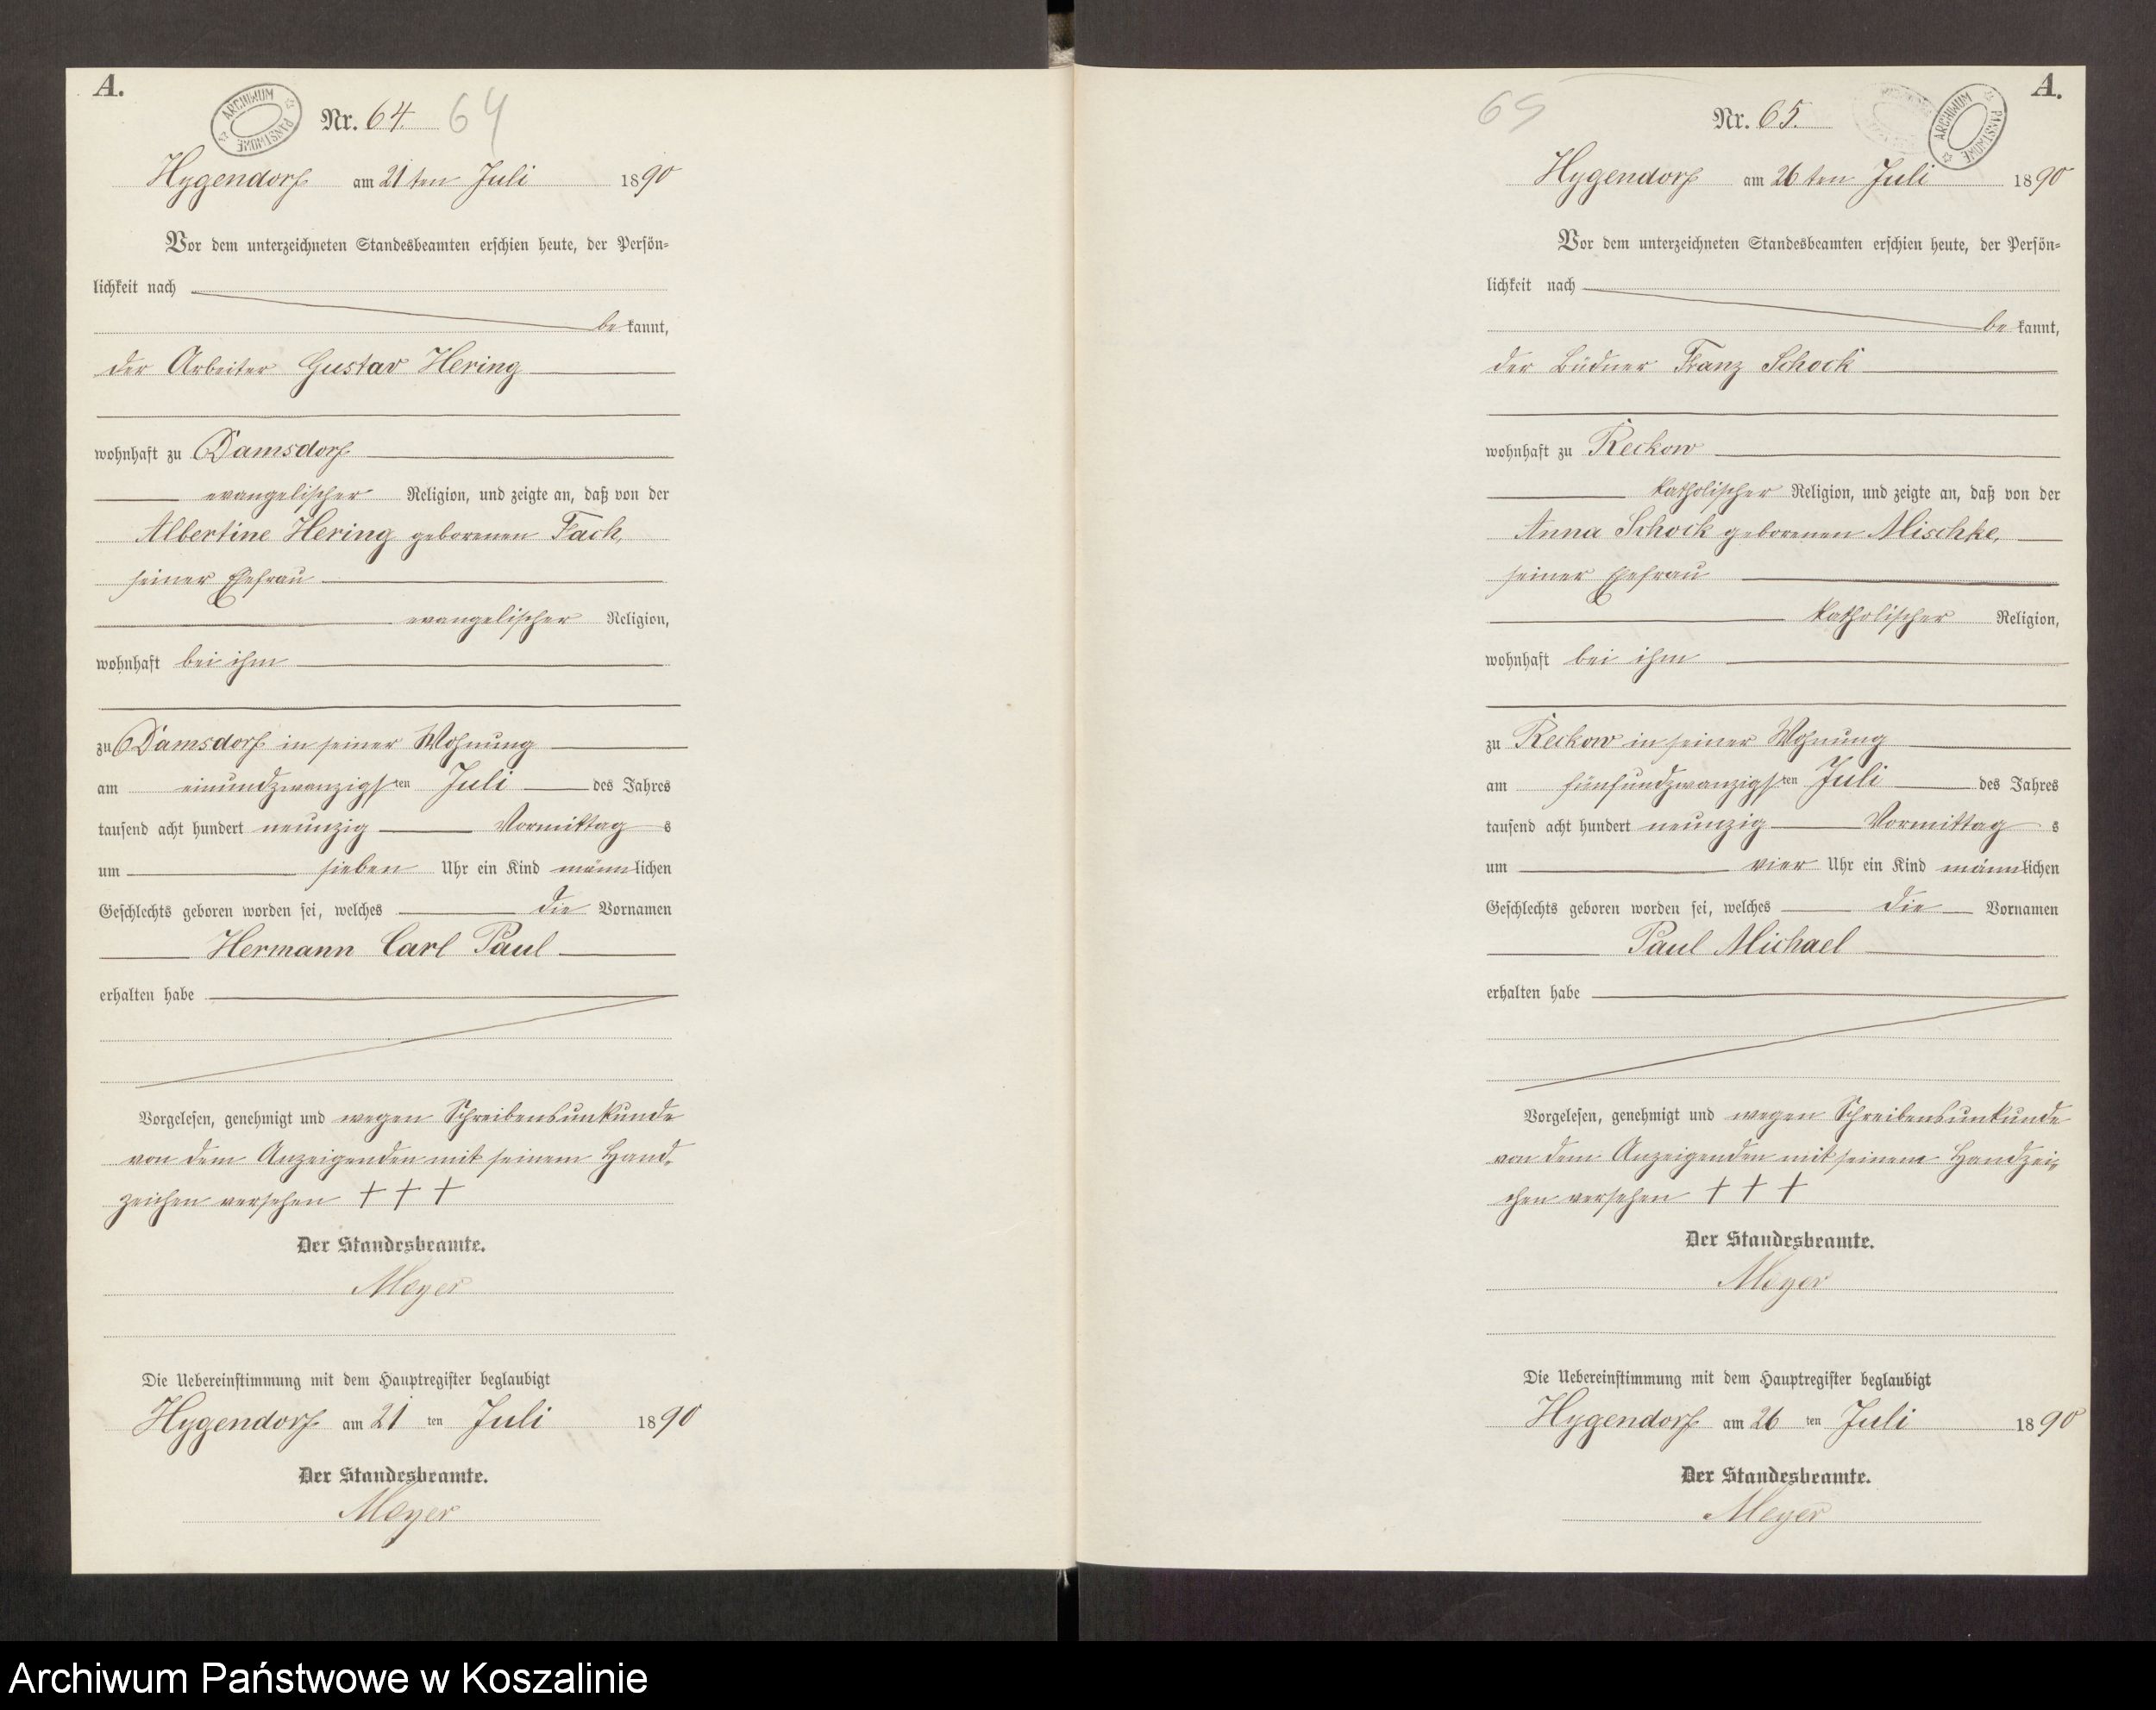 A.
ARCHIWUM PAŃSTWOWE
Nr. 64. 64
Hygendorf am 21 ten Juli 1890
Vor dem unterzeichneten Standesbeamten erschien heute, der Persön-
lichkeit nach
be kannt,
der Arbeiter Gustav Hering
wohnhaft zu Damsdorf
evangelischer Religion, und zeigte an, daß von der
Albertine Hering geborenen Fach,
seiner Ehefrau
evangelischer Religion,
wohnhaft bei ihm
zu Damsdorf in seiner Wohnung
am einundzwanzigsten Juli des Jahres
tausend acht hundert neunzig Vormittag s
um sieben Uhr ein Kind männlichen
Geschlechts geboren worden sei, welches die Vornamen
Hermann Carl Paul
erhalten habe
Vorgelesen, genehmigt und wegen Schreibensunkunde
von dem Anzeigenden mit seinem Hand-
zeichen versehen + + +
Der Standesbeamte.
Meyer
Die Uebereinstimmung mit dem Hauptregister beglaubigt
Hygendorf am 21 ten Juli 1890
Der Standesbeamte.
Meyer
A.
ARCHIWUM PAŃSTWOWE
65 Nr. 65.
Hygendorf am 26 ten Juli 1890
Vor dem unterzeichneten Standesbeamten erschien heute, der Persön-
lichkeit nach
be kannt,
der Büdner Franz Schock
wohnhaft zu Reckow
katholischer Religion, und zeigte an, daß von der
Anna Schock geborenen Mischke,
seiner Ehefrau
katholischer Religion,
wohnhaft bei ihm
zu Reckow in seiner Wohnung
am fünfundzwanzigsten Juli des Jahres
tausend acht hundert neunzig Vormittag s
um vier Uhr ein Kind männlichen
Geschlechts geboren worden sei, welches die Vornamen
Paul Michael
erhalten habe
Vorgelesen, genehmigt und wegen Schreibensunkunde
von dem Anzeigenden mit seinem Handzei-
chen versehen + + +
Der Standesbeamte.
Meyer
Die Uebereinstimmung mit dem Hauptregister beglaubigt
Hygendorf am 26 ten Juli 1890
Der Standesbeamte.
Meyer
Archiwum Państwowe w Koszalinie